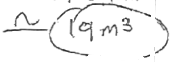 ~ 19m³